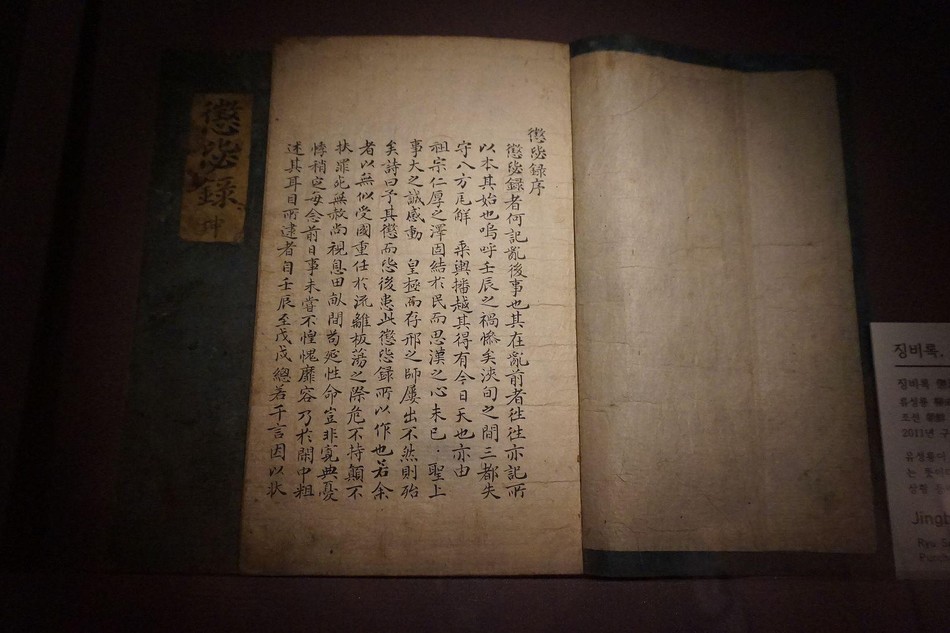 懲毖錄序
懲毖錄者何記亂後事也其在亂前者往往亦記所
以本其始也嗚呼壬辰之禍慘矣浹旬之間三都失
守八方瓦解 乘輿播越其得有今日天也亦由
祖宗仁厚之澤固結於民而思漢之心未已 聖上
事大之誠感動 皇極而存邢之師屢出不然則殆
矣詩曰予其懲而毖後患此懲毖錄所以作也若余
者以無似受國重任於流離板蕩之際危不持顚不
扶罪死無赦尚視息田畝間苟延性命豈非寬典憂
悸稍定每念前日事未嘗不惶愧靡容乃於閑中粗
述其耳目所逮者自壬辰至戊戌總若干言因以狀
懲毖錄
坤
징비록,
징비록
류성룡
조선
2011년
Jingb
Ryu S